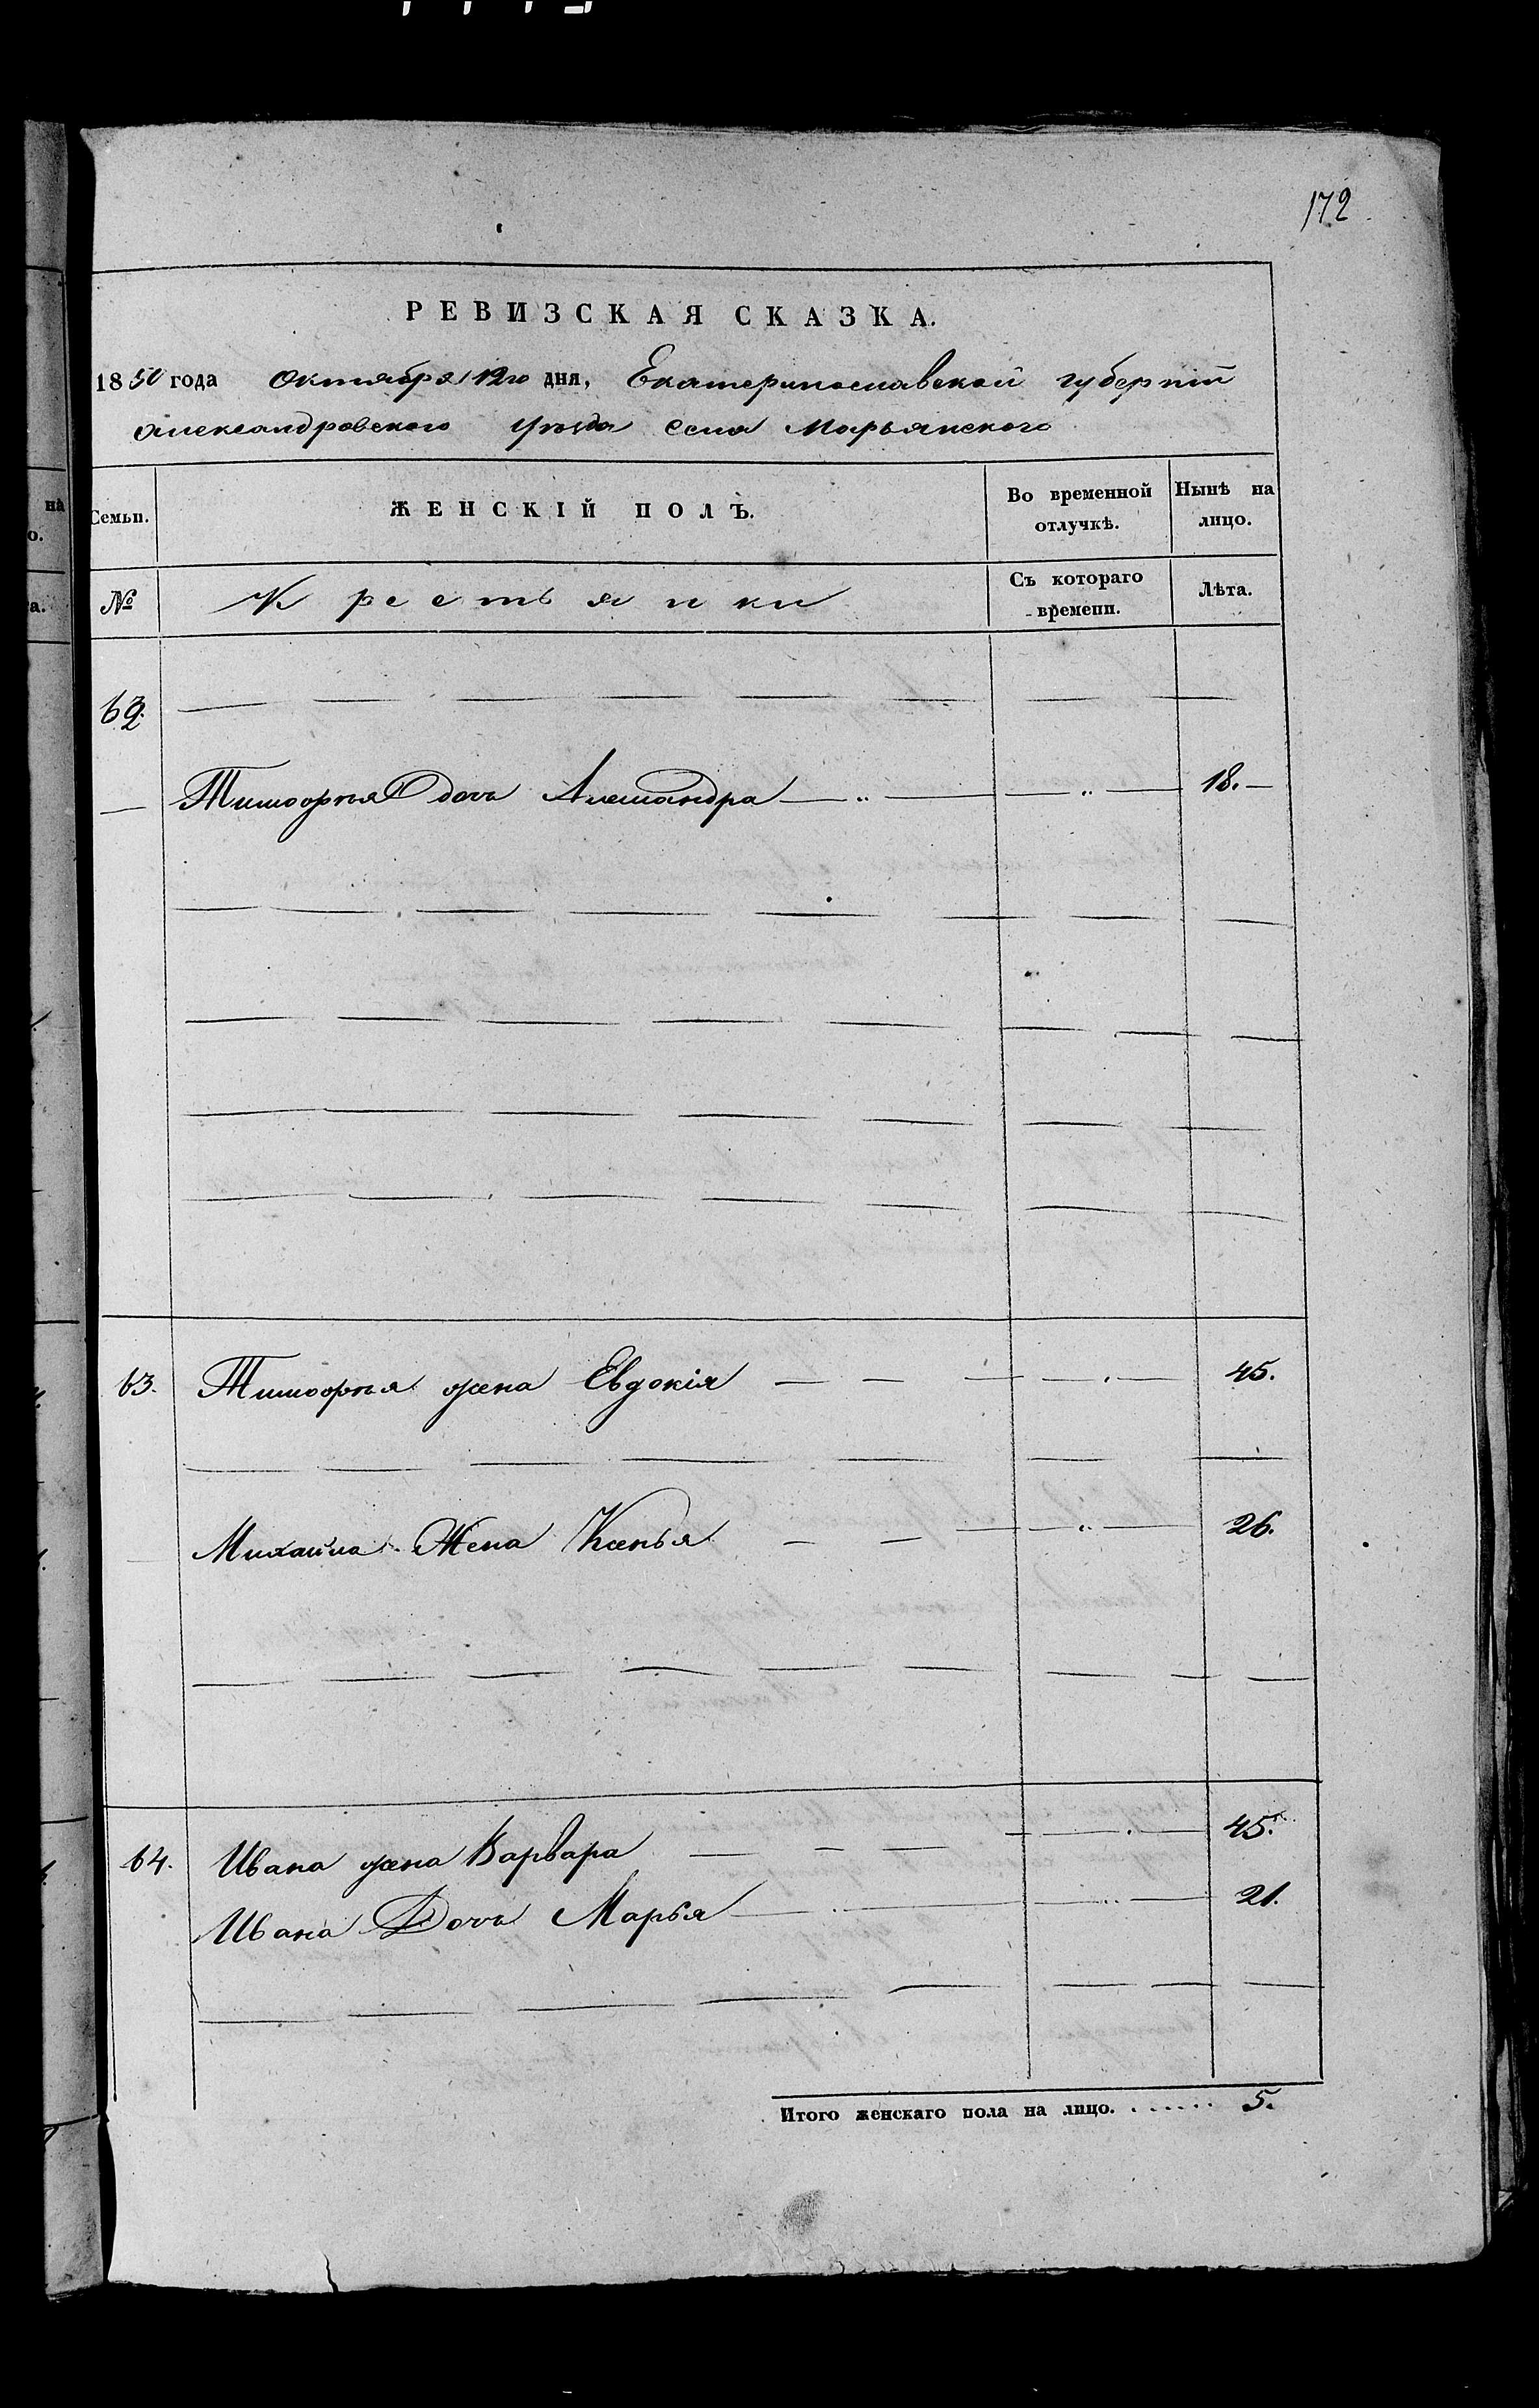 172
РЕВИЗСКАЯ СКАЗКА.
1850 года Октября 12го дня, Екатеринославской губерніи
Александровского Уѣзда Села Марьянского
Семьи. ЖЕНСКІЙ ПОЛЪ. Во временной отлучкѣ. Нынѣ на лицо.
№ Крестьянки Съ котораго времени. Лѣта.
62.
Тимофѣя дочь Александра 18.
63. Тимофѣя жена Евдокія 45.
Михайла Жена Ксенья 26.
64. Ивана жена Варвара 45.
Ивана Дочь Марья 21.
Итого женскаго пола на лицо. . . . . . . 5.
на
о.
а.